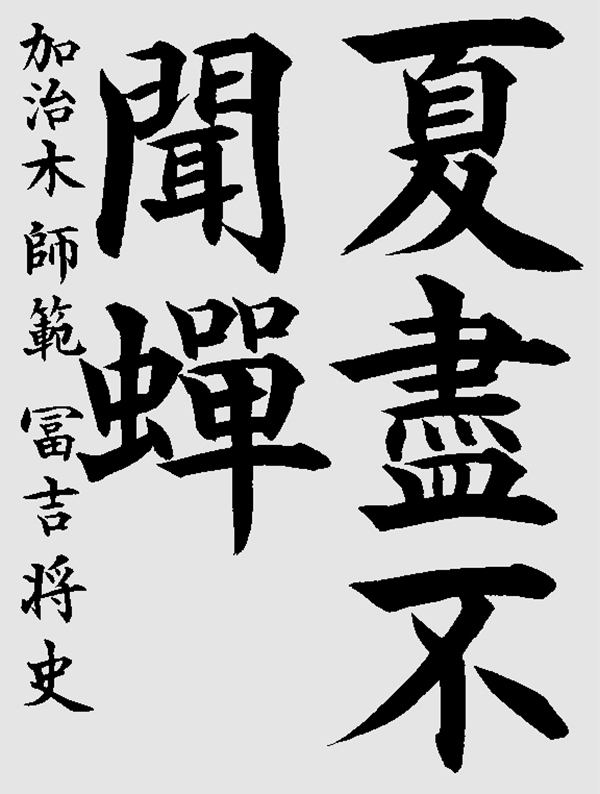 夏盡不
聞蟬
加治木 師範 冨吉将史